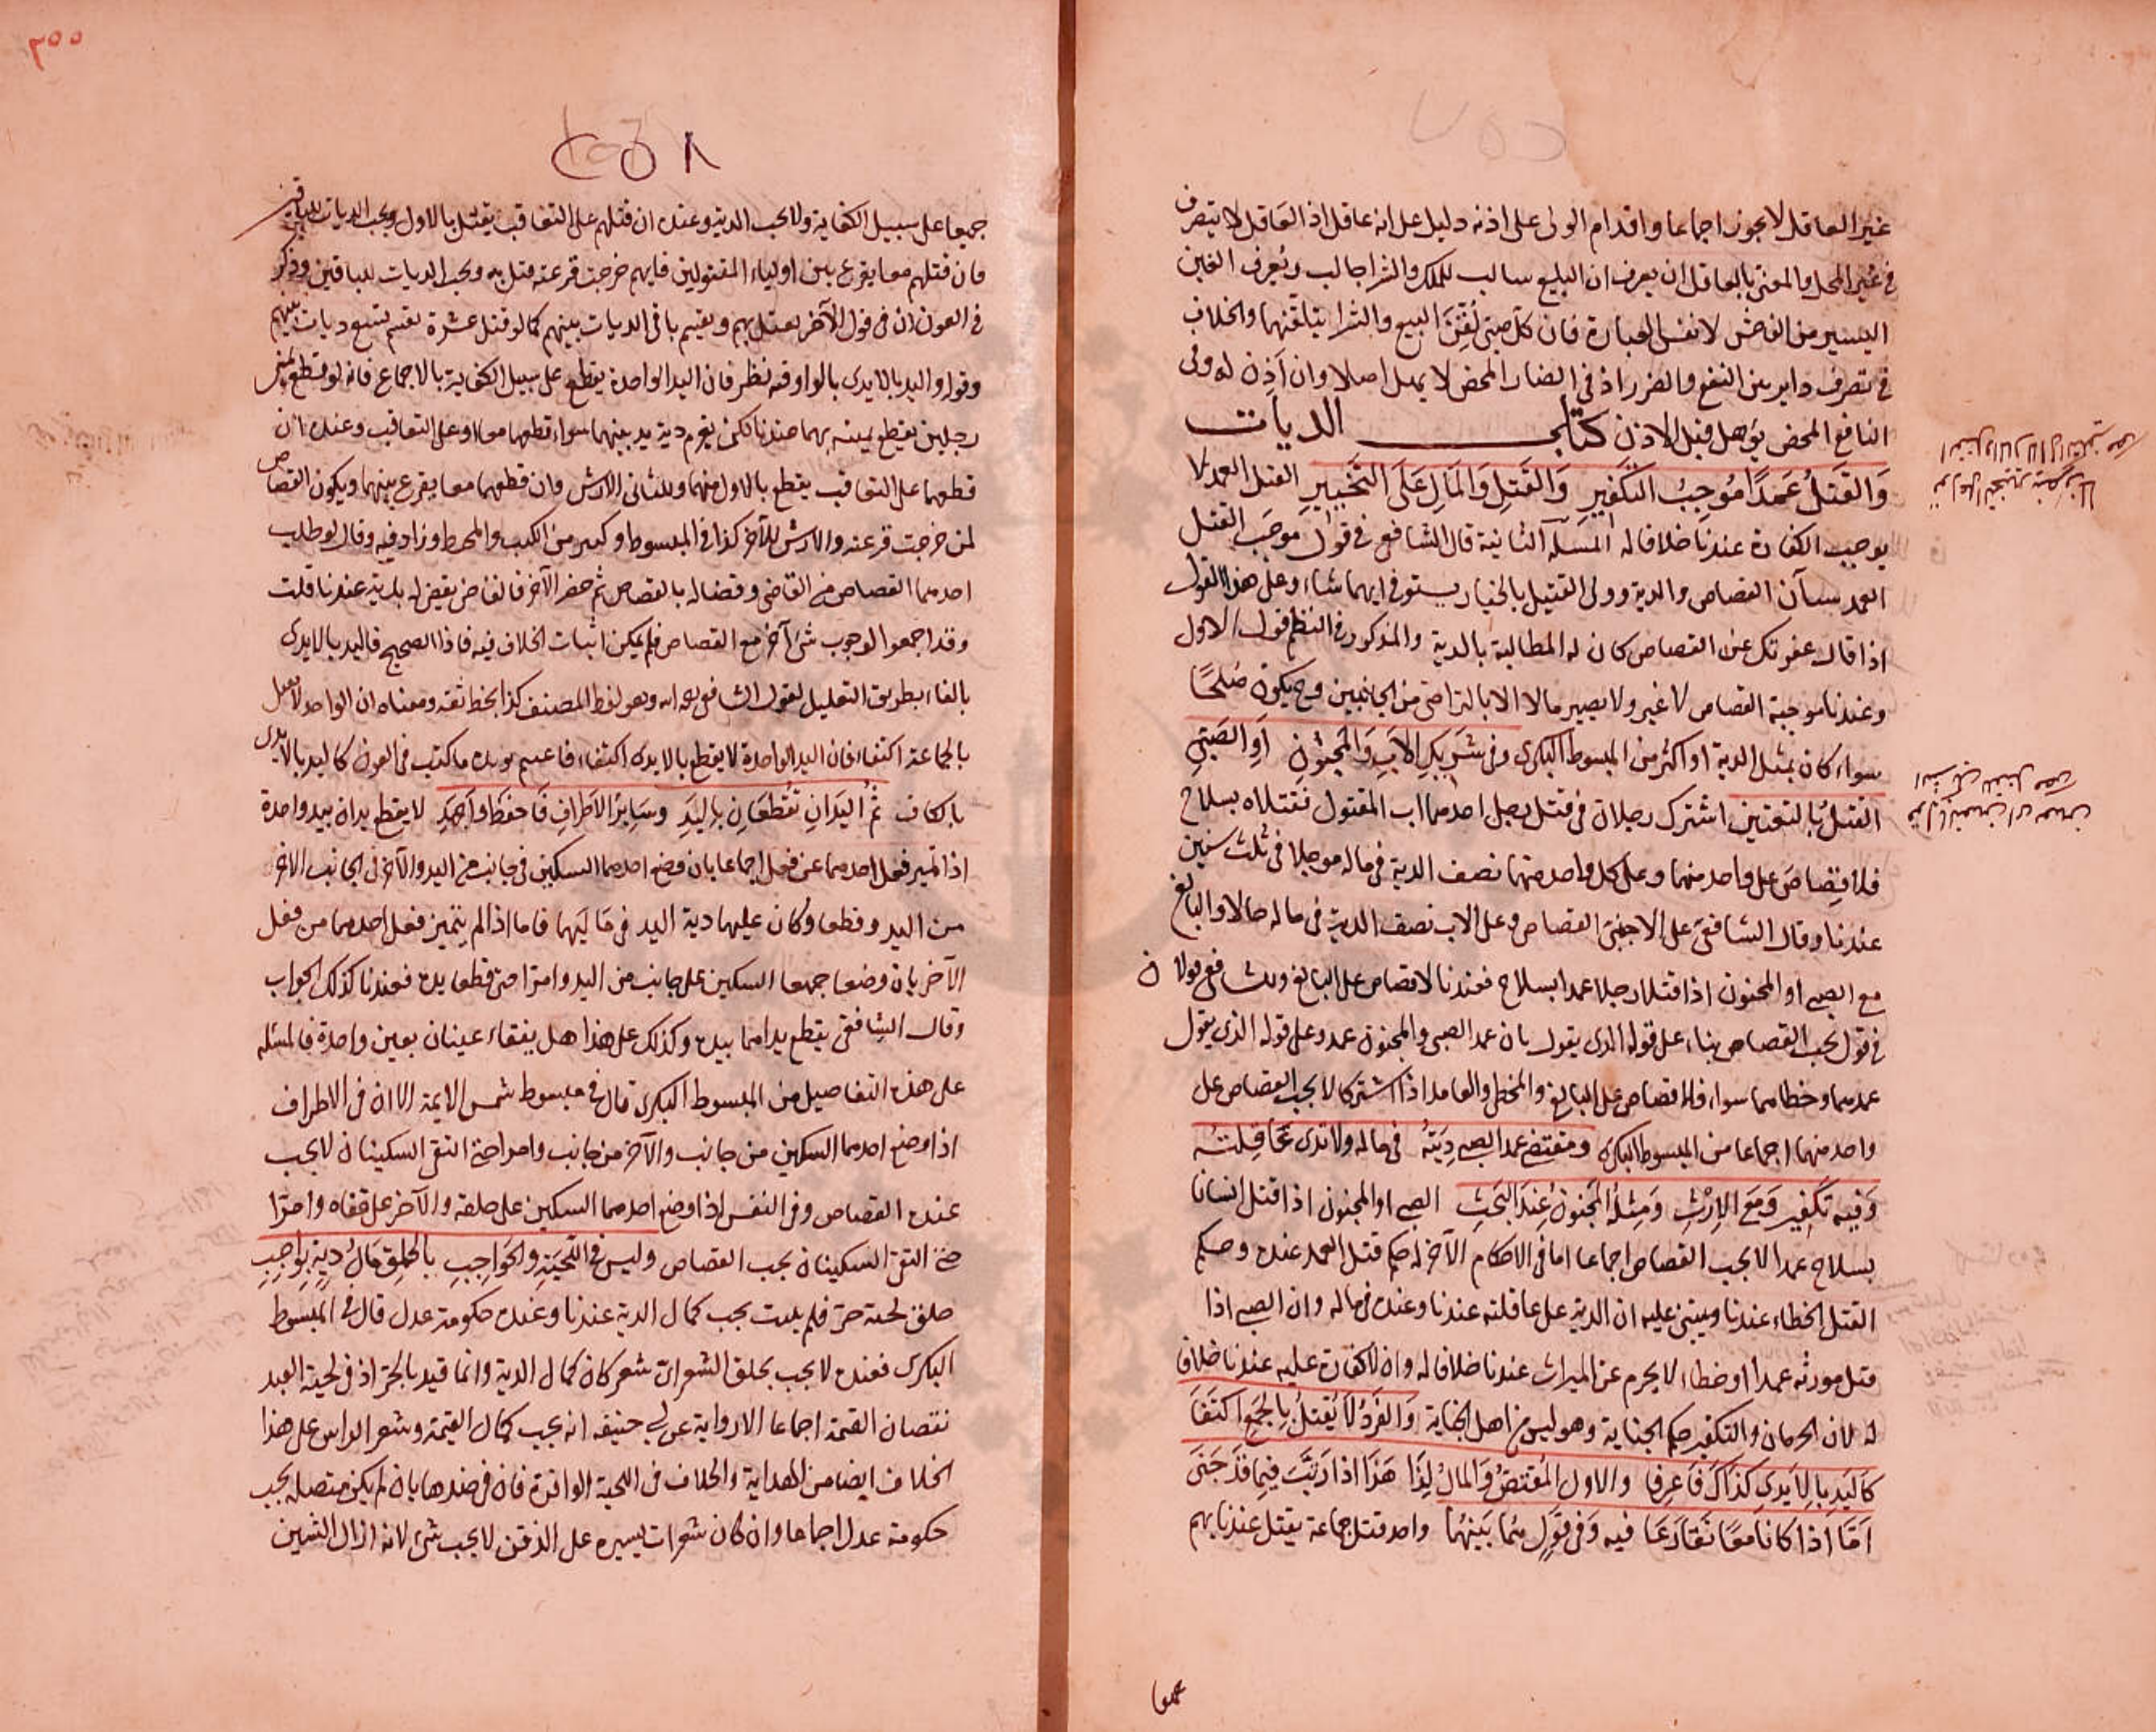 غير العاقل لا يجوز اجماعا واقدام الولى على اذنه دليل على انه عاقل اذ العاقل لا يتصرف
فى غير المحل والمعنى بالعاقل ان يعرف ان البيع سالب للملك والشرا جالب ويعرف الغبن
اليسير من الفاحش لا نفس العبارة فان كل صبى لُقِّنَ البيع والشرا يتلقنهما والخلاف
فى تصرف داير بين النفع والضرر اذ فى الضار المحض لا يمل اصلا وان اَذِن له وفى
النافع المحض يؤهل قبل الاذن كتاب الديات
وَالقَتلُ عَمدًا مُوجِبُ التكفيرِ وَالقَتلِ وَالمَالِ عَلَى التَخييرِ القتل العمد لا
يوجب الكفارة عندنا خلافا له المسئلة الثانية قال الشافعى فى قول موجَب القتل
العمد سيآن القصاص والدية وولى القتيل بالخيار يستوفى ايهما شاء وعلى هذا القول
اذا قال عفوتك عن القصاص كان له المطالبة بالدية والمذكور فى النظم قوله الاول
وعندنا موجبة القصاص لا غير ولا يصير مالا الا بالتراضى من الجانبين وح يكون صُلحًا
سواء كان بمثل الدية او اكثر من المبسوط البكرى وفى شَرِيكِ الاَبِ وَالمَجنُونِ اَوِ الصَبِّى
القتلُ بالتعتين اشترك رجلان فى قتل رجل احدهما اب المقتول فقتلاه بسلاح
فلا قِصاصَ على واحد منهما وعلى كل واحد منهما نصف الدية فى ماله موجلا فى ثلث سنين
عندنا وقال الشافعى على الاجنبى القصاص وعلى الاب نصف الدية فى ماله حالا والبالغ
مع الصبى او المجنون اذا قتلا رجلا عمدا بسلاح فعندنا لا قصاص على البالغ وللشافعى قولان
فى قول يجب القصاص بناء على قوله الذى يقول بان عمد الصبى والمجنون عمد وعلى قوله الذى يقول
عمدهما وخطاهما سواء فلا قصاص على البالغ والمخطى والعامد اذا اشتركا لا يجب القصاص على
واحد منهما اجماعا من المبسوط البكرى ومقتضى عمد الصبى دِيَتُهُ فى ماله ولا تدى عَاقِلتُه
وَفِيه تكفير وَمَعَ الاِرْثِ وَمِثلُهُ المَجنونُ عِندَ البَحثِ الصبى او المجنون اذا قتل انسانا
بسلاح عمدا لا يجب القصاص اجماعا اما فى الاحكام الآخر له حكم قتل العمد عنده وحكم
القتل الخطاء عندنا ويبتنى عليه ان الدية على عاقلته عندنا وعنده فى ماله وان الصبى اذا
قتل مورثه عمدا او خطاء لا يحرم عن الميراث عندنا خلافا له وان لا كفارة عليه عندنا خلافا
له لان الحرمان والتكفير حكم الجناية وهو ليس من اهل الجناية وَالفَردُ لاَ يُقتلُ بِالجَمعِ اكتَفَا
كاليَدِ بِالاَيدِى كذاكَ فَاعرِفَا والاول المُقتصُّ وَالمالُ لِذَا هَذَا اذا رَتَّبَ فِيمَا قَد جَنَى
اَمَّا اَذا كانَا مَعًا تَقَارَعَا فيه وَفى قَولٍ هُمَا بَينَهُمَا واحد قتل جماعة يقتل عندنا بهم
جميعا
٣٠٠
٢٥٨
جميعا على سبيل الكفاية ولا تجب الدية وعنده ان قتلهم على التعاقب يقتل بالاول وتجب الديات للباقين
فان قتلهم معا يقرع بين اولياء المقتولين فايهم خرجت قرعته قتل به وتجب الديات للباقين وذكر
فى العون ان فى قول الآخر يقتل بهم ويقسم باقى الديات بينهم كما لو قتل عشرة تقسم تسع ديات بينهم
وقوله واليد بالايدى بالواو فيه نظر فان اليد الواحدة يقطع على سبيل الكفاية بالاجماع فانه لو قطع يمين
رجلين يقطع يمينه بهما عندنا لكن يغرم دية يد بينهما سواء قطعهما معا او على التعاقب وعنده ان
قطعهما على التعاقب يقطع بالاول منهما وللثانى الارش وان قطعهما معا يقرع بينهما ويكون القصاص
لمن خرجت قرعته والارش للآخر كذا فى المبسوط وكثير من الكتب والمحيط وزاد فيه وقال لو طلب
احدهما القصاص من القاضى وقضا له بالقصاص ثم حضر الآخر فالقاضى يقضى له بالدية عندنا قلت
وقد اجمعوا لوجوب شئ آخر مع القصاص فلم يمكن اثبات الخلاف فيه فاذا الصحيح فاليد بالايدى
بالفاء بطريق التعليل لقول الشافعى رحمه الله وهو لفظ المصنف كذا بخط ثقة ومعناه ان الواحد لا يقتل
بالجماعة اكتفاء فان اليد الواحدة لا يقطع بالايدى اكتفاء فاعلم يويده ما كتب فى العون كاليد بالايدى
بالكاف ثُمَّ اليَدَانِ تُقطَعَانِ بِاليَدِ وسَايرُ الاَطرافِ فَاحفَظ وَاجهَدِ لا يقطع يدان بيد واحدة
اذا تميز فعل احدهما عن فعل اجماعا بان وضع احدهما السكين فى جانب من اليد والآخر فى الجانب الآخر
من اليد وقطعا وكان عليهما دية اليد فى مَالَيهما فاما اذا لم يتميز فعل احدهما من فعل
الآخر بان وضعا جميعا السكين على جانب من اليد وامرّا حتى قطعا يده فعندنا كذلك الجواب
وقال الشافعى يقطع يداهما بيده وكذلك على هذا هل يفقاء عينان بعين واحدة فالمسئلة
على هذه التفاصيل من المبسوط البكرى قال فى مبسوط شمس الايمة الا ان فى الاطراف
اذا وضع احدهما السكين من جانب والآخر من جانب وامرا حتى التقى السكينان لا يجب
عنده القصاص وفى النفس اذا وضع احدهما السكين على حلقه والآخر على قفاه وامرّا
حتى التقى السكينان يجب القصاص وليس فى اللّحيَةِ والحَوَاجِبِ بالحلقِ مَالُ دِيةٍ بِوَاجِبِ
حلق لحية حرّ فلم ينبت يجب كمال الدية عندنا وعنده حكومة عدل قال فى المبسوط
البكرى فعنده لا يجب بحلق الشعر اىّ شعر كان كمال الدية وانما قيد بالحرّ اذ فى لحية العبد
نقصان القيمة اجماعا الا رواية عن ابى حنيفة انه يجب كمال القيمة وشعر الراس على هذا
الخلاف ايضا من الهداية والخلاف فى اللحية الوافرة فان فى ضدها بان لم يكن متصلا يجب
حكومة عدل اجماعا وان كان شعرات يسيره على الذقن لا يجب شئ لانه ازال الشين